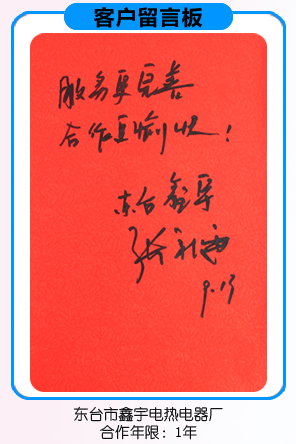 客户留言板
服务更完善
合作更愉快！
东台鑫宇
9.13
东台市鑫宇电热电器厂
合作年限：1年